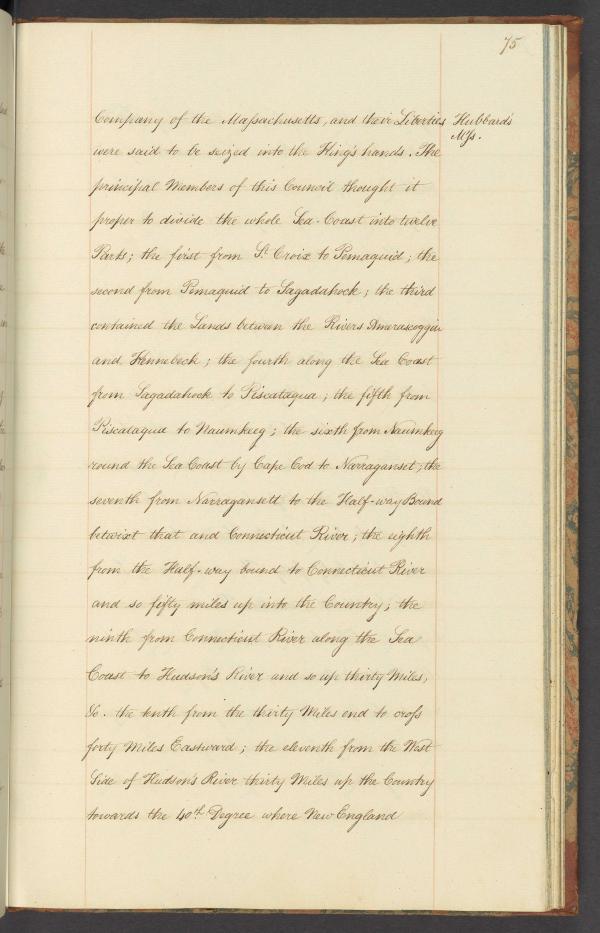 75
Company of the Massachusetts, and their Liberties
Hubbard's
Mss.
were said to be seized into the King's hands. The
principal Members of this Council thought it
proper to divide the whole Sea-Coast into twelve
Parts; the first from St. Croix to Pemaquid; the
second from Pemaquid to Sagadahock; the third
contained the Lands between the Rivers Amerascoggin
and Kennebeck; the fourth along the Sea Coast
from Sagadahock to Piscataqua; the fifth from
Piscataqua to Naumkeeg; the sixth from Naumkeeg
round the Sea Coast by Cape Cod to Narraganset; the
seventh from Narragansett to the Half-way Bound
betwixt that and Connecticut River; the eighth
from the Half-way bound to Connecticut River
and so fifty miles up into the Country; the
ninth from Connecticut River along the Sea
Coast to Hudson's River and so up thirty Miles,
&c. the tenth from the thirty Miles end to cross
forty Miles Eastward; the eleventh from the West
Side of Hudson's River thirty Miles up the Country
towards the 40th Degree where New England